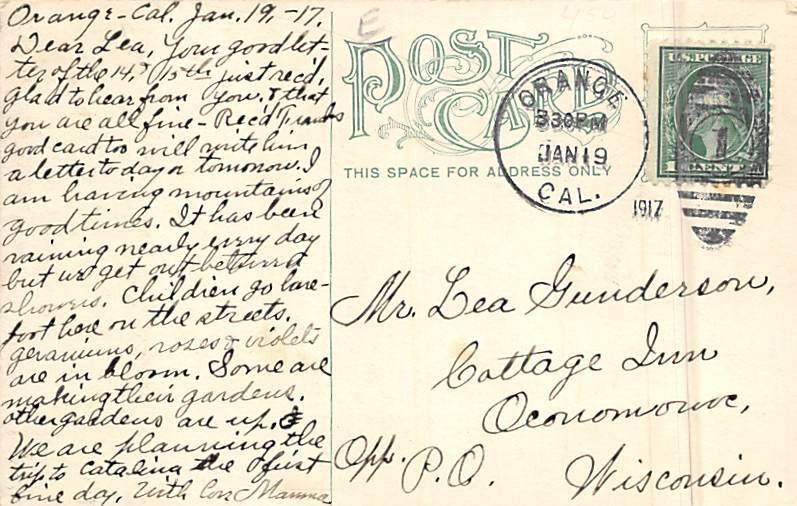 Orange-Cal. Jan. 19,-17.
Dear Lea, Your good let-
ter of the 14, & 15th just rec'd,
glad to hear from you. & that
you are all fine - Rec'd Frank's
good card too will write him
a letter to day or tomorrow. I
am having mountains of
good times. It has been
raining nearly every day
but we get out between
showers. Children go bare-
foot here on the streets.
geraniums, roses & violets
are in bloom. Some are
making their gardens.
other gardens are up.
We are planning the
trip to Catalina the first
fine day, With love Mamma
E
POST
CARD
THIS SPACE FOR ADDRESS ONLY
ORANGE
530PM
JAN 19
CAL.
1917
U.S. POSTAGE
1 CENT 1
Mr. Lea Gunderson,
Cottage Inn
Oconomowoc,
Opp. P.O. Wisconsin.